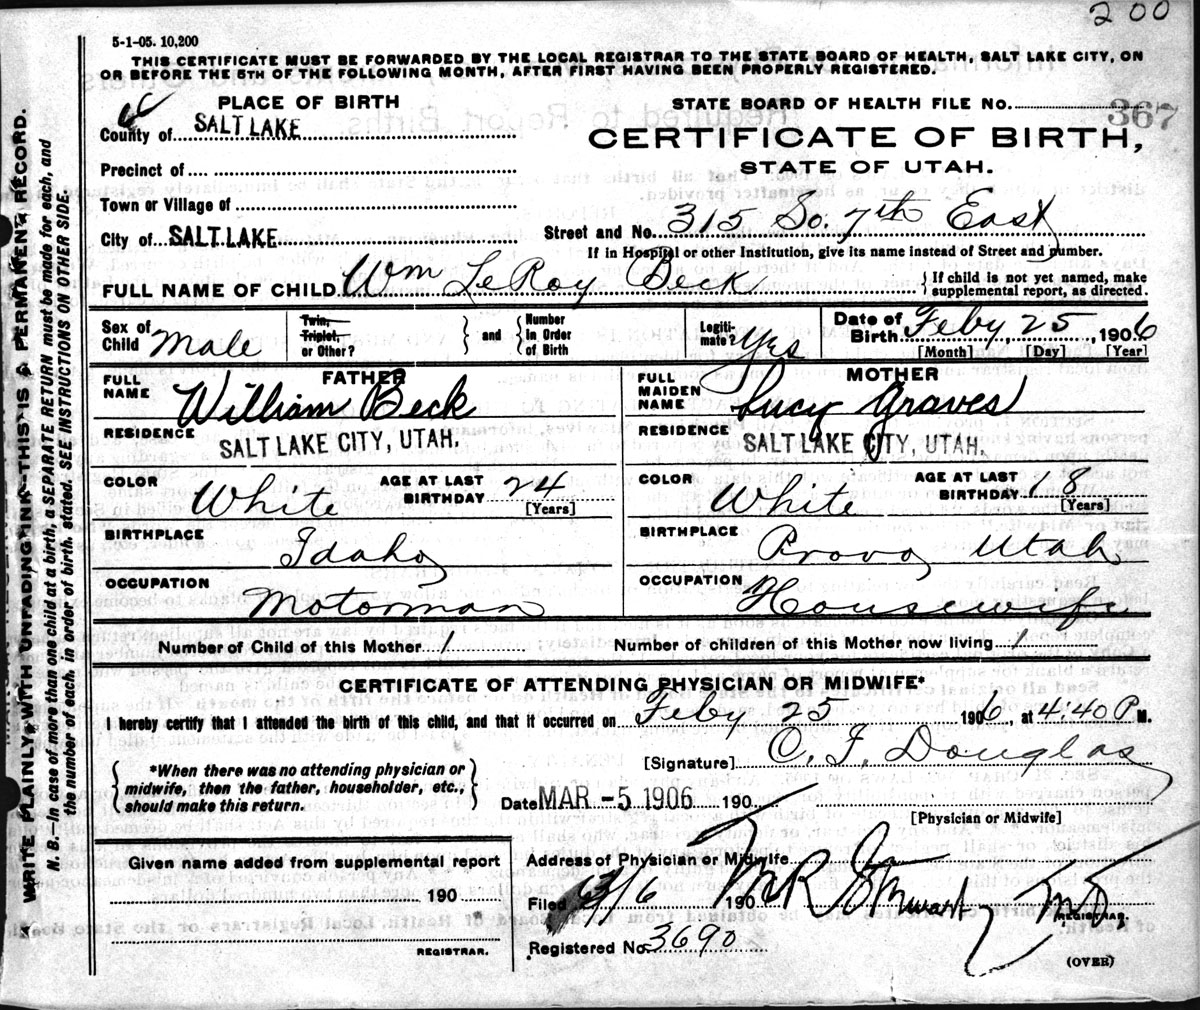 200
5-1-05. 10,200
THIS CERTIFICATE MUST BE FORWARDED BY THE LOCAL REGISTRAR TO THE STATE BOARD OF HEALTH, SALT LAKE CITY, ON
OR BEFORE THE 5TH OF THE FOLLOWING MONTH, AFTER FIRST HAVING BEEN PROPERLY REGISTERED.
PLACE OF BIRTH
County of SALT LAKE
Precinct of
Town or Village of
City of SALT LAKE
STATE BOARD OF HEALTH FILE NO.
367
CERTIFICATE OF BIRTH,
STATE OF UTAH.
Street and No. 315 So. 7th East
If in Hospital or other Institution, give its name instead of Street and number.
FULL NAME OF CHILD Wm LeRoy Beck
If child is not yet named, make
supplemental report, as directed.
Sex of Child Male
Twin, Triplet, or Other?
and
Number in Order of Birth
Legiti-mate? Yes
Date of Birth Feby 25, 1906
[Month] [Day] [Year]
FATHER
FULL NAME William Beck
RESIDENCE
SALT LAKE CITY, UTAH.
COLOR White
AGE AT LAST BIRTHDAY 24
[Years]
BIRTHPLACE Idaho
OCCUPATION Motorman
MOTHER
FULL MAIDEN NAME Lucy Graves
RESIDENCE
SALT LAKE CITY, UTAH.
COLOR White
AGE AT LAST BIRTHDAY 18
[Years]
BIRTHPLACE Provo Utah
OCCUPATION Housewife
Number of Child of this Mother 1
Number of children of this Mother now living 1
CERTIFICATE OF ATTENDING PHYSICIAN OR MIDWIFE*
I hereby certify that I attended the birth of this child, and that it occurred on Feby 25 1906, at 4:40 P.M.
*When there was no attending physician or
midwife, then the father, householder, etc.,
should make this return.
[Signature] C. F. Douglas
Date MAR -5 1906 190
[Physician or Midwife]
Given name added from supplemental report
190
REGISTRAR.
Address of Physician or Midwife
Filed 3/6 190
M.D.
REGISTRAR.
Registered No. 3690
(OVER)
WRITE PLAINLY WITH UNFADING INK—THIS IS A PERMANENT RECORD.
N. B.—In case of more than one child at a birth, a SEPARATE RETURN must be made for each, and
the number of each, in order of birth, stated. SEE INSTRUCTIONS ON OTHER SIDE.